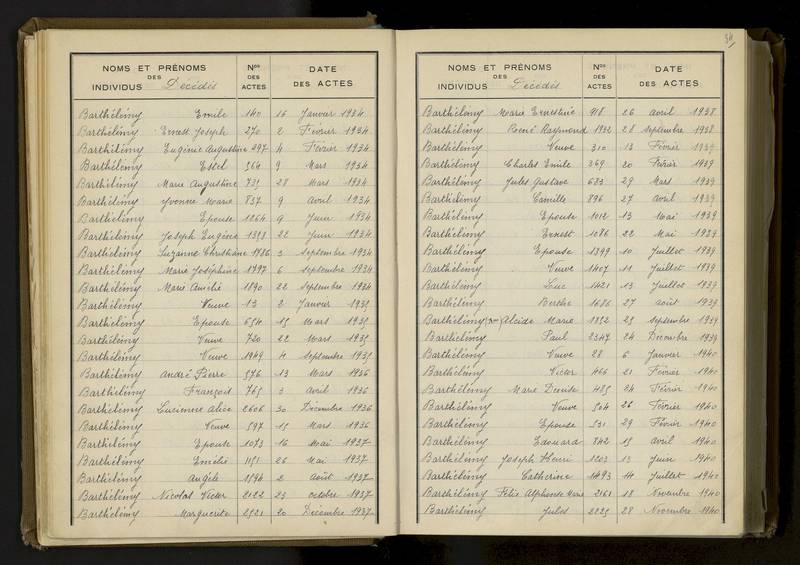 NOMS ET PRÉNOMS
DES
INDIVIDUS Décédés
Nos
DES
ACTES
DATE
DES ACTES
Barthélémy Emile 140 16 Janvier 1934
Barthélémy Ernest Joseph 270 2 Février 1934
Barthélémy Eugénie Augustine 297 4 Février 1934
Barthélémy 564 9 Mars 1934
Barthélémy Marie Augustine 735 28 Mars 1934
Barthélémy Yvonne Marie 837 9 Avril 1934
Barthélémy Epouse 1264 9 Juin 1934
Barthélémy Joseph Eugène 1393 22 Juin 1934
Barthélémy Suzanne Christiane 1786 3 Septembre 1934
Barthélémy Marie Joséphine 1797 6 Septembre 1934
Barthélémy Marie Amélie 1890 22 Septembre 1934
Barthélémy Veuve 13 2 Janvier 1935
Barthélémy Epouse 654 15 Mars 1935
Barthélémy Veuve 720 22 Mars 1935
Barthélémy Veuve 1949 4 Septembre 1935
Barthélémy André Pierre 576 13 Mars 1936
Barthélémy François 765 3 Avril 1936
Barthélémy Lucienne Alice 2606 30 Décembre 1936
Barthélémy Veuve 597 15 Mars 1936
Barthélémy Epouse 1073 16 Mai 1937
Barthélémy Emélie 1151 26 Mai 1937
Barthélémy Angèle 1594 2 Août 1937
Barthélémy Nicolas Victor 2122 23 Octobre 1937
Barthélémy Marguerite 2521 20 Décembre 1937
34
NOMS ET PRÉNOMS
DES
INDIVIDUS Décédés
Nos
DES
ACTES
DATE
DES ACTES
Barthélémy Marie Ernestine 918 26 Avril 1938
Barthélémy René Raymond 1932 28 Septembre 1938
Barthélémy Veuve 310 13 Février 1939
Barthélémy Charles Emile 369 20 Février 1939
Barthélémy Jules Gustave 683 29 Mars 1939
Barthélémy Camille 896 27 Avril 1939
Barthélémy Epouse 1012 13 Mai 1939
Barthélémy Ernest 1086 22 Mai 1939
Barthélémy Epouse 1399 10 Juillet 1939
Barthélémy Veuve 1407 11 Juillet 1939
Barthélémy Luc 1421 13 Juillet 1939
Barthélémy Berthe 1686 27 Août 1939
Barthélémy Alcide Marie 1852 25 Septembre 1939
Barthélémy Paul 2347 24 Décembre 1939
Barthélémy Veuve 28 6 Janvier 1940
Barthélémy Victor 466 21 Février 1940
Barthélémy Marie Denise 485 24 Février 1940
Barthélémy Veuve 504 26 Février 1940
Barthélémy Epouse 531 29 Février 1940
Barthélémy Edouard 842 15 Avril 1940
Barthélémy Joseph Henri 1203 13 Juin 1940
Barthélémy Catherine 1493 14 Juillet 1940
Barthélémy Félix Alphonse Marie 2161 18 Novembre 1940
Barthélémy Jules 2225 28 Novembre 1940